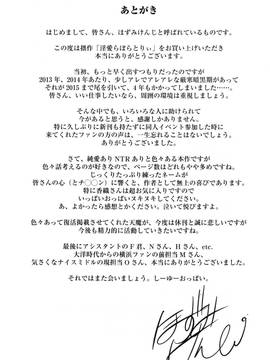 あとがき
はじめまして、皆さん、ほずみけんじと呼ばれているものです。
この度は拙作『淫愛らぼらとりぃ』をお買い上げいただき
本当にありがとうございます。
当初、もっと早く出すつもりだったのですが
2013年、2014年あたり、少しアレでアレアレな厳寒暗黒期があって
それが2015まで尾を引いて、4年もかかってしまいました……。
皆さん、いい仕事したいなら、周囲の環境は重視しましょう。
そんな中でも、いろいろな人に助けられて
今があると思うと、感謝しかありません。
特に久しぶりに新刊も持たずに同人イベント参加した時に
来てくれたファンの方の声は、一生忘れることはないでしょう。
ありがとうございました。
さて、純愛ありNTRありと色々ある本作ですが
色々話考えるのが好きなので、ページ数はどれもやや多めですね。
じっくりたっぷり練ったネームが
皆さんの心（とチ〇〇ン）に響くと、作者として無上の喜びであります。
特に香織さんは超お気に入りですので
いっぱいおっぱいヌキヌキしてください。
あ、よかったら感想とかください。泣いて悦びますよ。
色々あって復活掲載させてくれた天魔が、今度は休刊と誠に悲しいですが
今後も精力的に活動していきたいですね。
最後にアシスタントのF君、Nさん、Hさん、etc.
大洋時代からの横浜ファンの前担当Mさん、
気さくなナイスミドルの現担当Oさん、本当にありがとうございました。
それではまた会いましょう。しーゆーおっぱい。